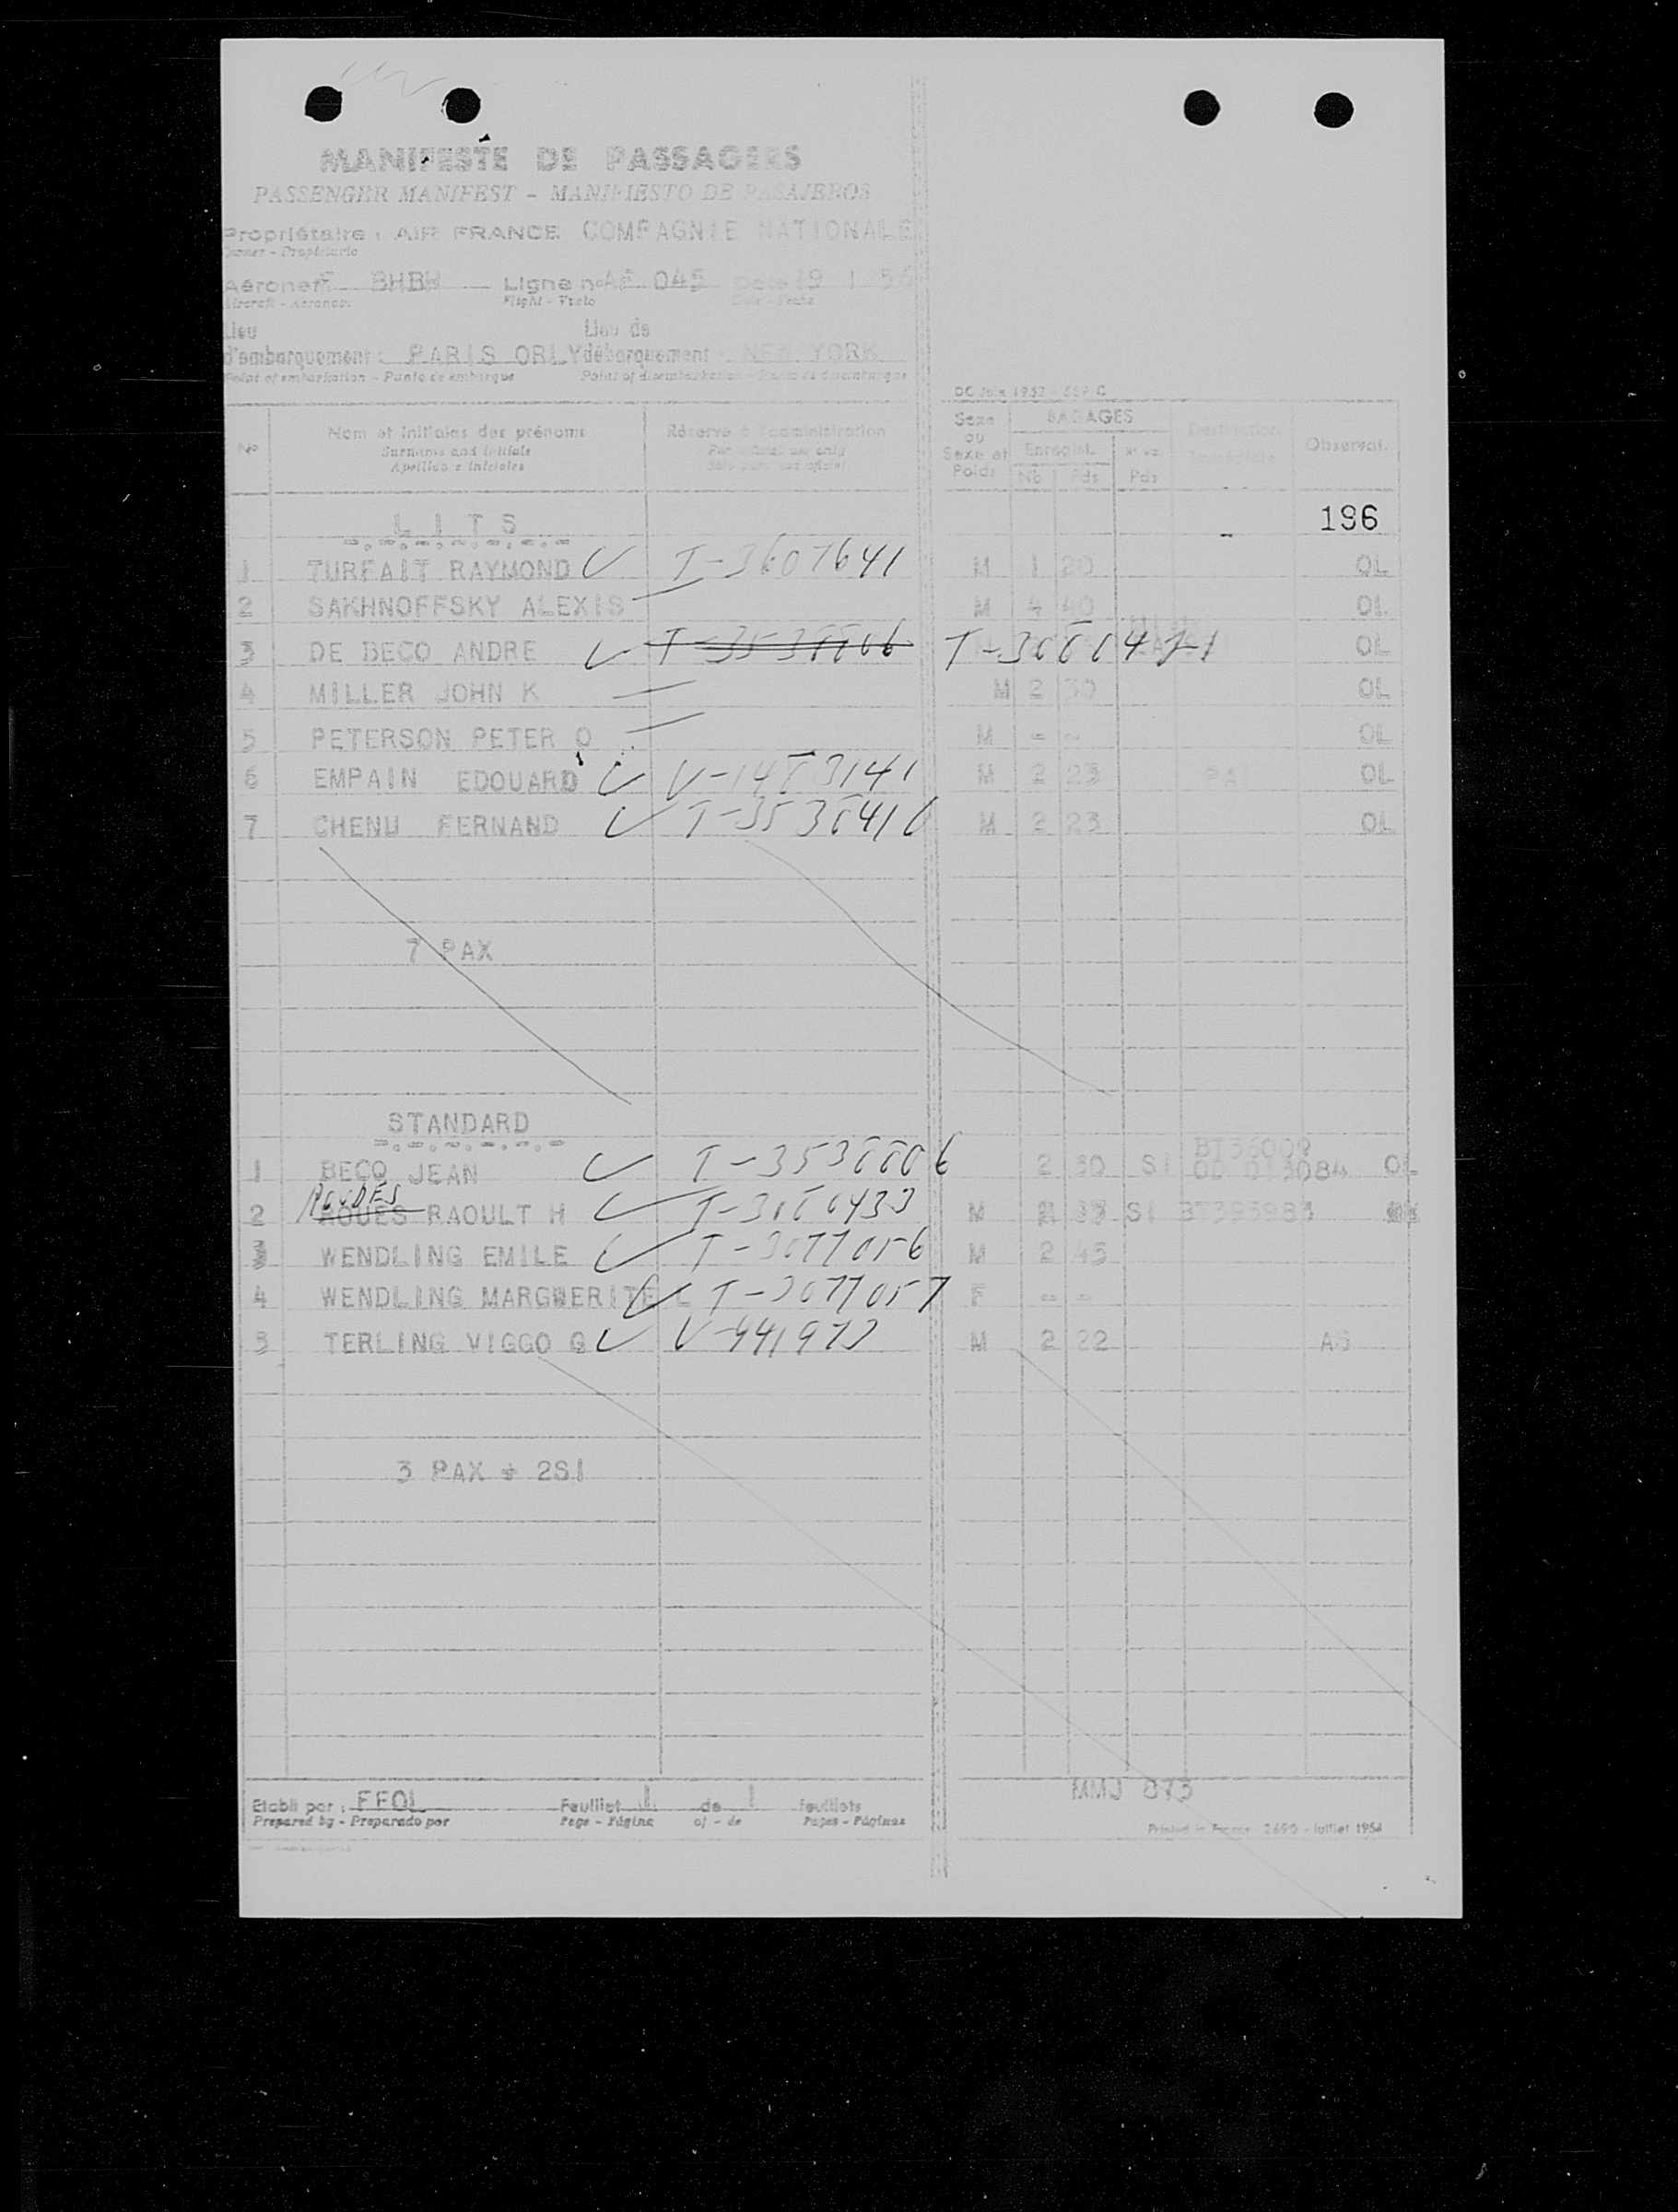 MANIFESTE DE PASSAGERS
PASSENGER MANIFEST - MANIFIESTO DE PASAJEROS
Propriétaire : AIR FRANCE COMPAGNIE NATIONALE
Owner - Propietario
Aéronef F BHBH Ligne n° AF 045 Date 19 1 56
Aircraft - Aeronave Flight - Vuelo Date - Fecha
Lieu d'embarquement : PARIS ORLY Lieu de débarquement : NEW YORK
Point of embarkation - Punto de embarque Point of disembarkation - Punto de desembarque
N° Nom et initiales des prénoms Réservé à l'administration Sexe ou Sexe et Poids BAGAGES Observat.
Surname and initials For official use only Enregist.
Apellido e iniciales Nb Pds Pds
LITS 196
1 TURFAIT RAYMOND T-3607641 M 1 20 OL
2 SAKHNOFFSKY ALEXIS M 4 40 OL
3 DE BECO ANDRE OL
4 MILLER JOHN K M 2 30 OL
5 PETERSON PETER O M = - OL
6 EMPAIN EDOUARD V-1483141 M 2 23 OL
7 CHENU FERNAND T-3538416 M 2 23 OL
7 PAX
STANDARD
1 BECQ JEAN T-3538806 2 30 SI OL
2 ROUES RAOULT H M SI
3 WENDLING EMILE T-3077056 M 2 45
4 WENDLING MARGUERITE T-3077057 F = -
5 TERLING VIGGO G V-941973 M 2 22
3 PAX + 2SI
Etabli par : FFOL Feuillet 1 de 1 feuillets MMJ 873
Prepared by - Preparado por Page - Página of - de Pages - Páginas Printed in France